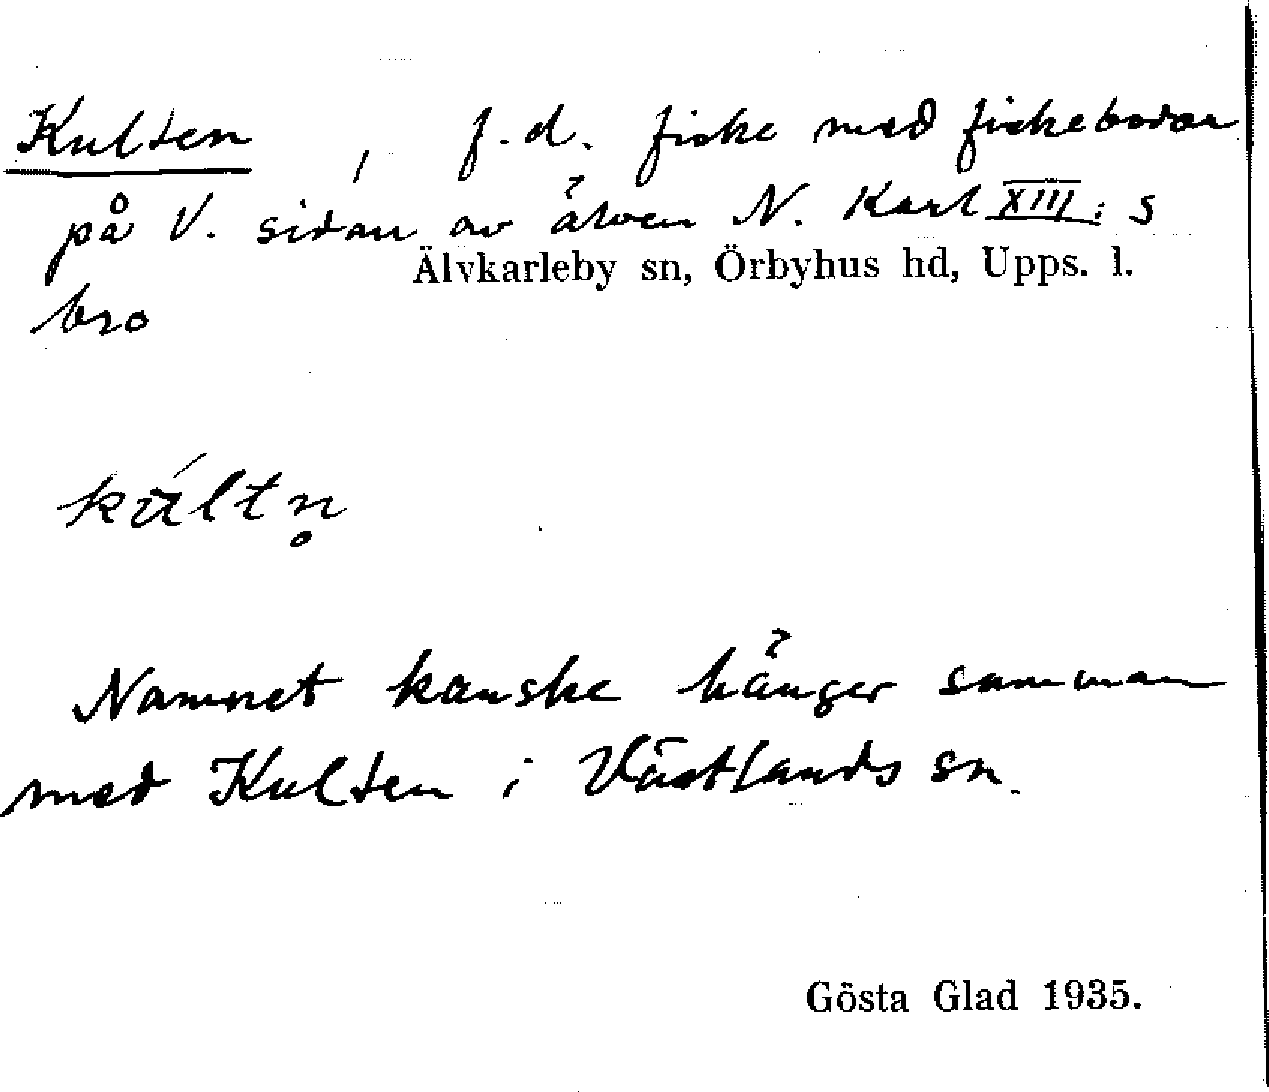 Kulten, f.d. fiske med fiskebodar
på V. sidan av älven N. Karl XIII:s
Älvkarleby sn, Örbyhus hd, Upps. l.
bro
kúltn̥
Namnet kanske hänger samman
med Kulten i Västlands sn.
Gösta Glad 1935.